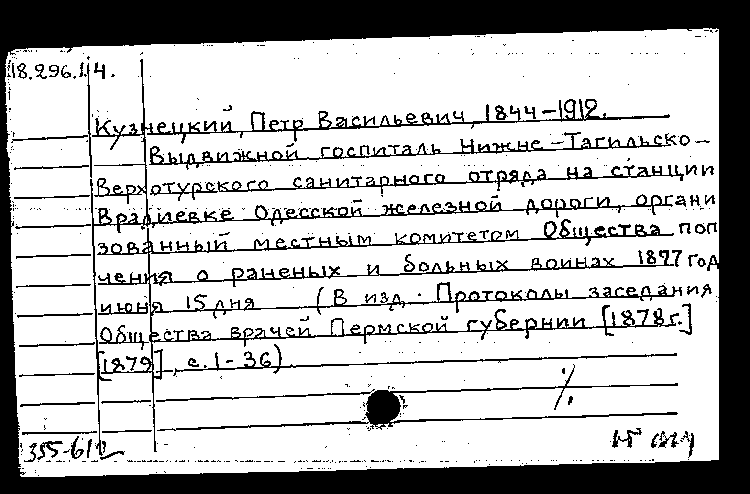 18.296.114.
Кузнецкий, Петр Васильевич, 1844-1912.
Выдвижной госпиталь Нижне-Тагильско-
Верхотурского санитарного отряда на станции
Врадиевке Одесской железной дороги, органи
зованный местным комитетом Общества поп
чения о раненых и больных воинах 1877 год
июня 15 дня (В изд. Протоколы заседания
Общества врачей Пермской губернии [1878г.]
[1879], с. 1-36)
355-612